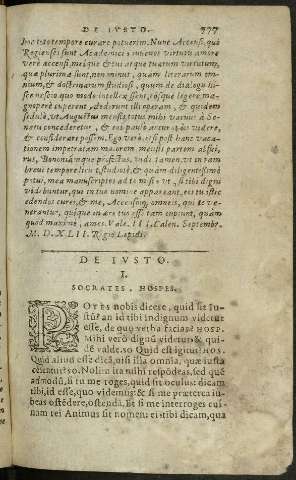 DE IVSTO. 377
hoc toto tempore curare potuerim. Nunc Accensi, qui
Regienses sunt Academici iuuenes virtutis amore
vere accensi, meique & tui atque tuarum virtutum,
quæ plurimæ sunt, non minus, quàm literarum om-
nium, & doctrinarum studiosi, quum de dialogis hi-
sce nescio quo modo intellexissent, eósque legere ma-
gnopere cuperent, dederunt illi operam, & quidem
sedulò, vt Augustus mense totus mihi vacuus à Se-
natu concederetur, & eos paulò accuratiùs videre,
& considerare possem. Ego verò, etsi post hanc vaca-
tionem impetratam maiorem mensis partem abfui,
rus, Bononiámque profectus, vidi tamen, vt in tam
breui tempore licuit, studiosè, & quàm diligentissimè
potui, mea manuscripta ad te misi vt, si tibi digni
videbuntur, qui in tuo nomine appareant, eos tu istic
edendos cures, & me, Accensósque omneis, qui te ve-
nerantur, quíque in ære tuo esse tam cupiunt, quàm
quod maximè, ames. Vale. III. Calen. Septembr.
M. D. XLII. Regio Lepidi.
DE IVSTO.
I.
SOCRATES, HOSPES.
POTES nobis dicere, quid sit Iu-
stũ? an id tibi indignum videtur
esse, de quo verba faciam? HOSP.
Mihi verò dignũ videtur, & qui-
dẽ valde. so Quid est igitur? HOS.
Quid aliud esse dicã, nisi illa omnia, quæ iusta
cẽsentur? so. Noli ita mihi respõdere, sed que-
admodũ, si tu me roges, quid sit oculus: dicam
tibi, id esse, quo videmus: & si me præterea iu-
beas ostẽdere, ostendã. Et si me interroges cui-
nam rei Animus sit nomen: et tibi dicam, qua